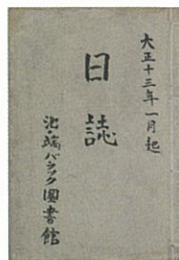 大正十三年一月起
日誌
池ノ端バラック圖書館